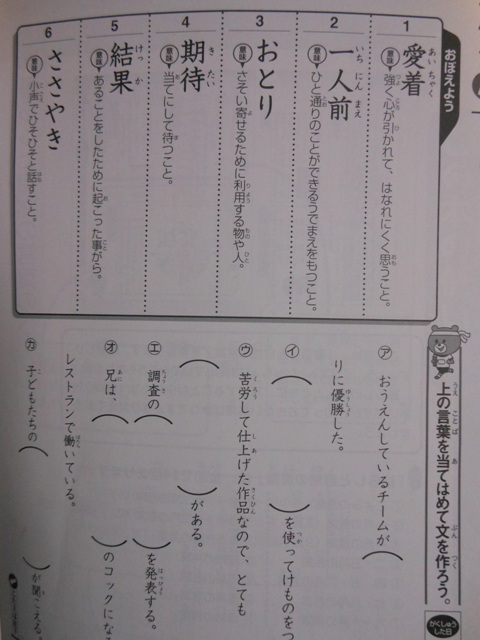 おぼえよう
1 愛着 あいちゃく
意味 強く心が引かれて、はなれにくく思うこと。
2 一人前 いちにんまえ
意味 ひと通りのことができるうでまえをもつこと。
3 おとり
意味 さそい寄せるために利用する物や人。
4 期待 きたい
意味 当てにして待つこと。
5 結果 けっか
意味 あることをしたために起こった事がら。
6 ささやき
意味 小声でひそひそと話すこと。
上の言葉を当てはめて文を作ろう。
がくしゅうした日
㋐ おうえんしているチームが(
りに優勝した。
㋑ ( )を使ってけものをつ
㋒ 苦労して仕上げた作品なので、とても
( )がある。
㋓ 調査の( )を発表する。
㋔ 兄は、( )のコックにな
レストランで働いている。
㋕ 子どもたちの( )が聞こえる。